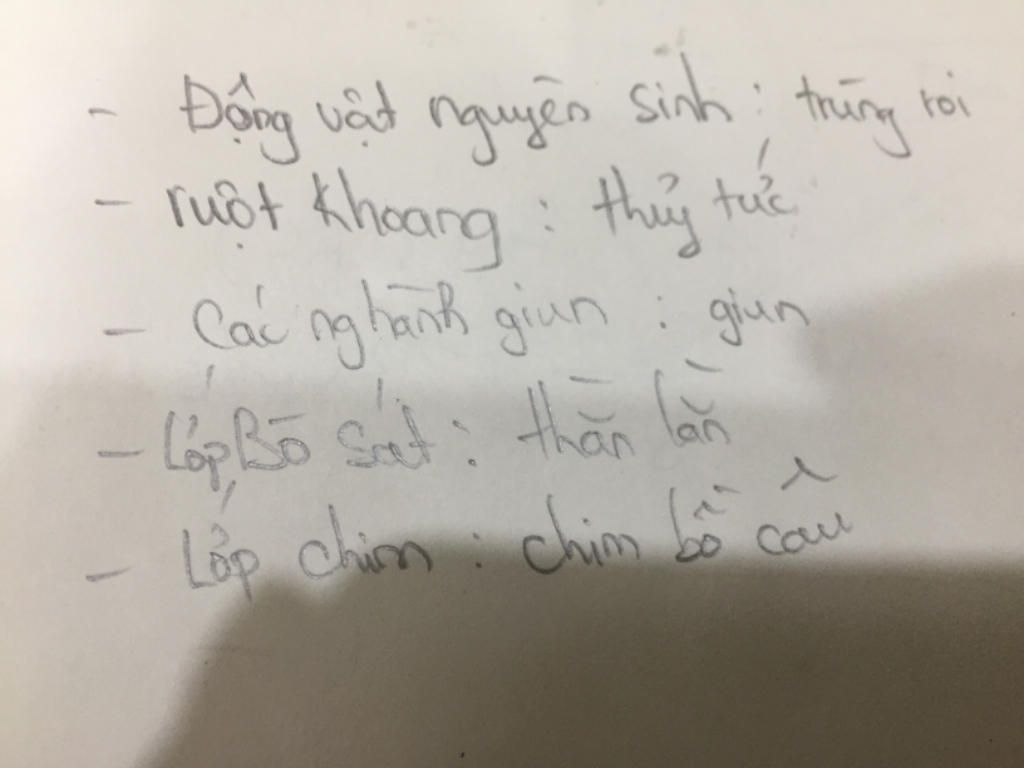 - Động vật nguyên sinh : trùng roi
- ruột khoang : thủy tức
- Các nghành giun : giun
- Lớp Bò sát : thằn lằn
- Lớp chim : chim bồ câu